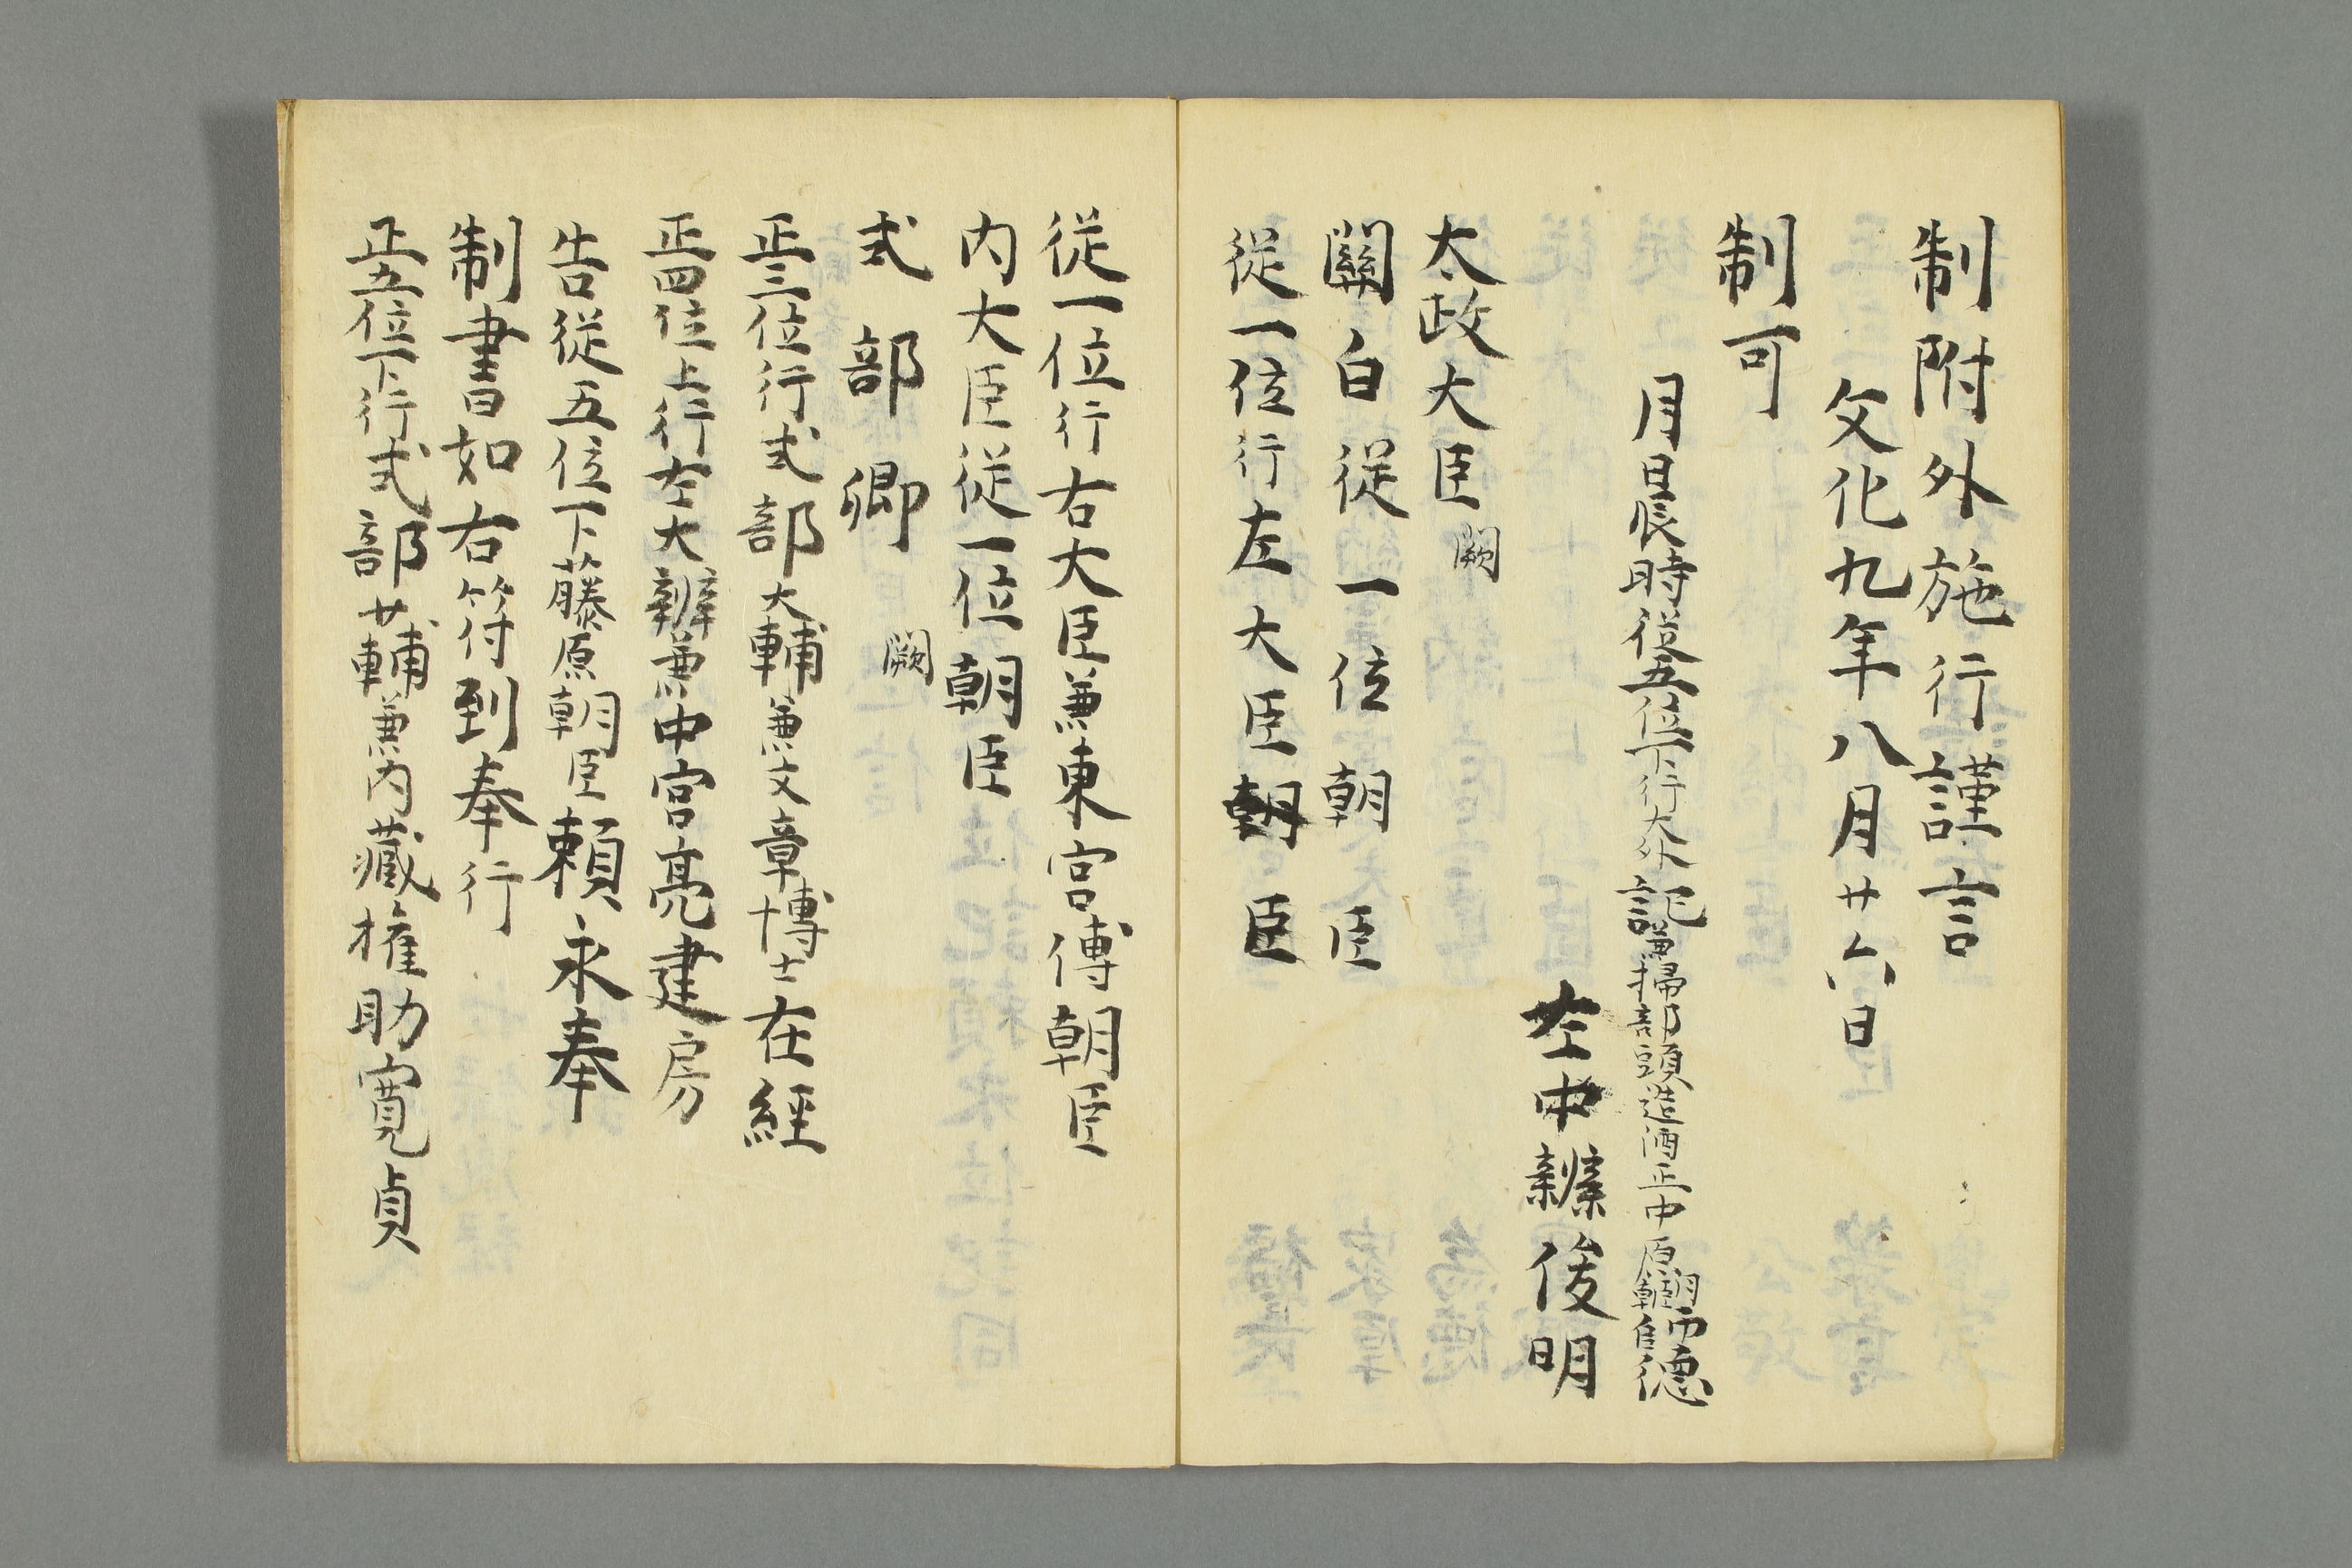 制附外施行謹言
文化九年八月廿六日
制可
月日辰時從五位下行大外記兼掃部頭造酒正中原朝臣師德
左中辨俊明
太政大臣闕
關白從一位朝臣
從一位行左大臣朝臣
從一位行右大臣兼東宮傅朝臣
内大臣從一位朝臣
式部卿闕
正三位行式部大輔兼文章博士在經
正四位上行左大辨兼中宮亮建房
告從五位下藤原朝臣賴永奉
制書如右符到奉行
正五位下行式部少輔兼内藏權助寬貞